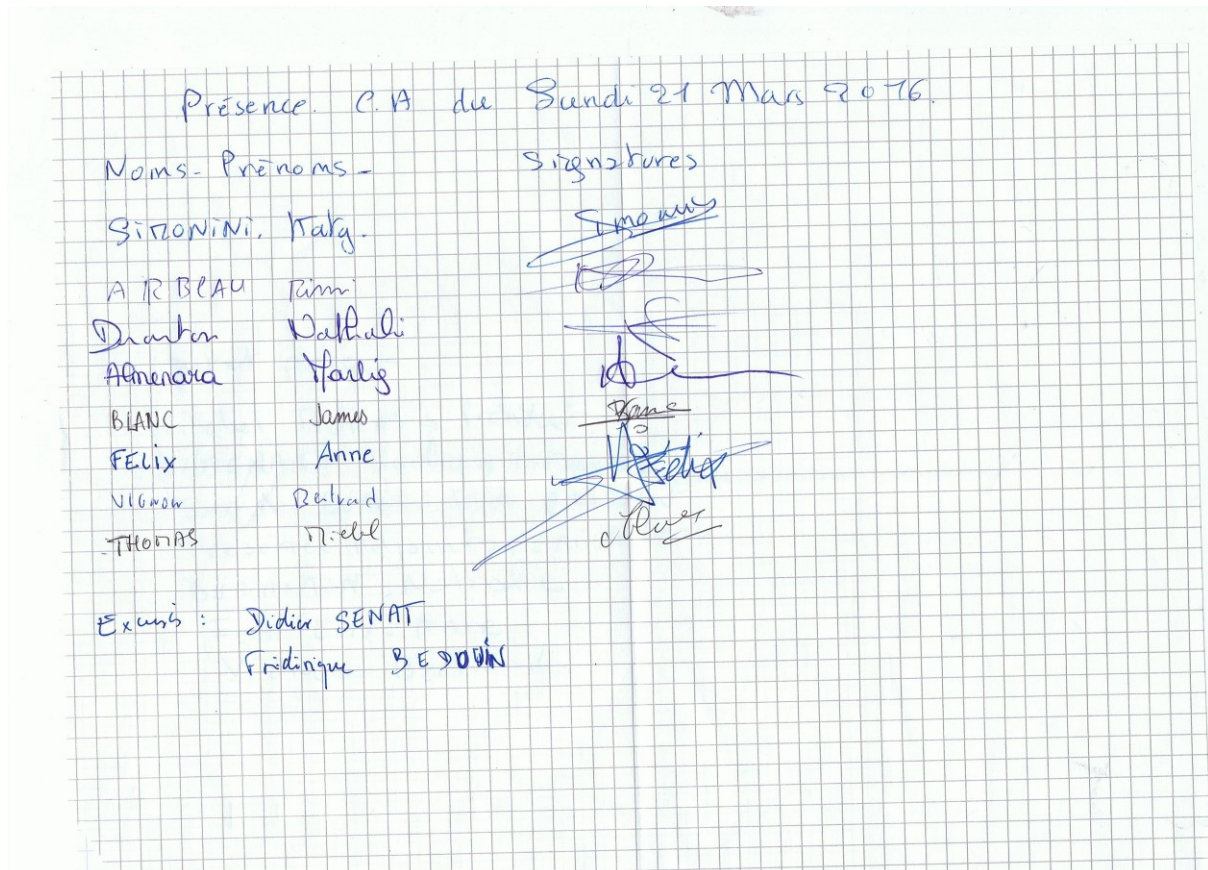 Présence. C.A du Lundi 21 Mars 2016.
Noms - Prénoms - Signatures
SIMONINI. Katy.
AIRBEAU Rémi
Nathali
Almenara Marlis
BLANC James
FELIX Anne Felix
VIGNON Bertrand
THOMAS Michel
Excusés : Didier SENAT
Frédérique BEDOUIN